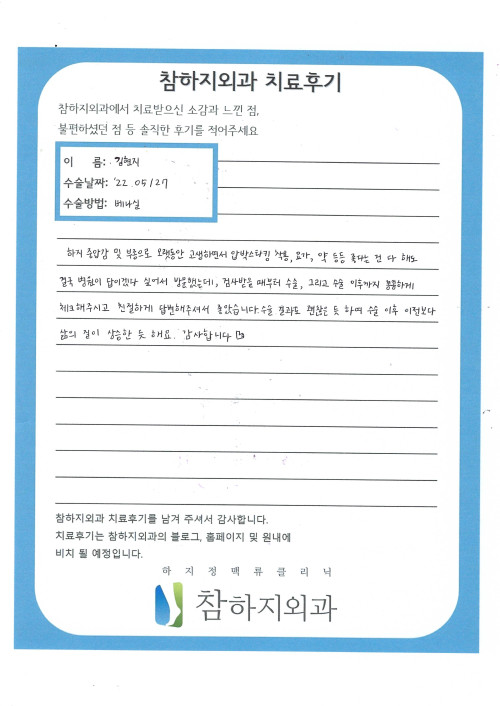 참하지외과 치료후기
참하지외과에서 치료받으신 소감과 느낀 점,
불편하셨던 점 등 솔직한 후기를 적어주세요
이 름: 김현지
수술날짜: '22. 05/27
수술방법: 베나실
하지 중압감 및 부종으로 오랫동안 고생하면서 압박스타킹 착용, 요가, 약 등등 좋다는 건 다 해도
결국 병원이 답이겠다 싶어서 방문했는데, 검사받을 때부터 수술, 그리고 수술 이후까지 꼼꼼하게
체크해주시고 친절하게 답변해주셔서 좋았습니다. 수술 결과도 괜찮은 듯 하며 수술 이후 이전보다
삶의 질이 상승한 듯 해요. 감사합니다
참하지외과 치료후기를 남겨 주셔서 감사합니다.
치료후기는 참하지외과의 블로그, 홈페이지 및 원내에
비치 될 예정입니다.
하지정맥류클리닉
참하지외과